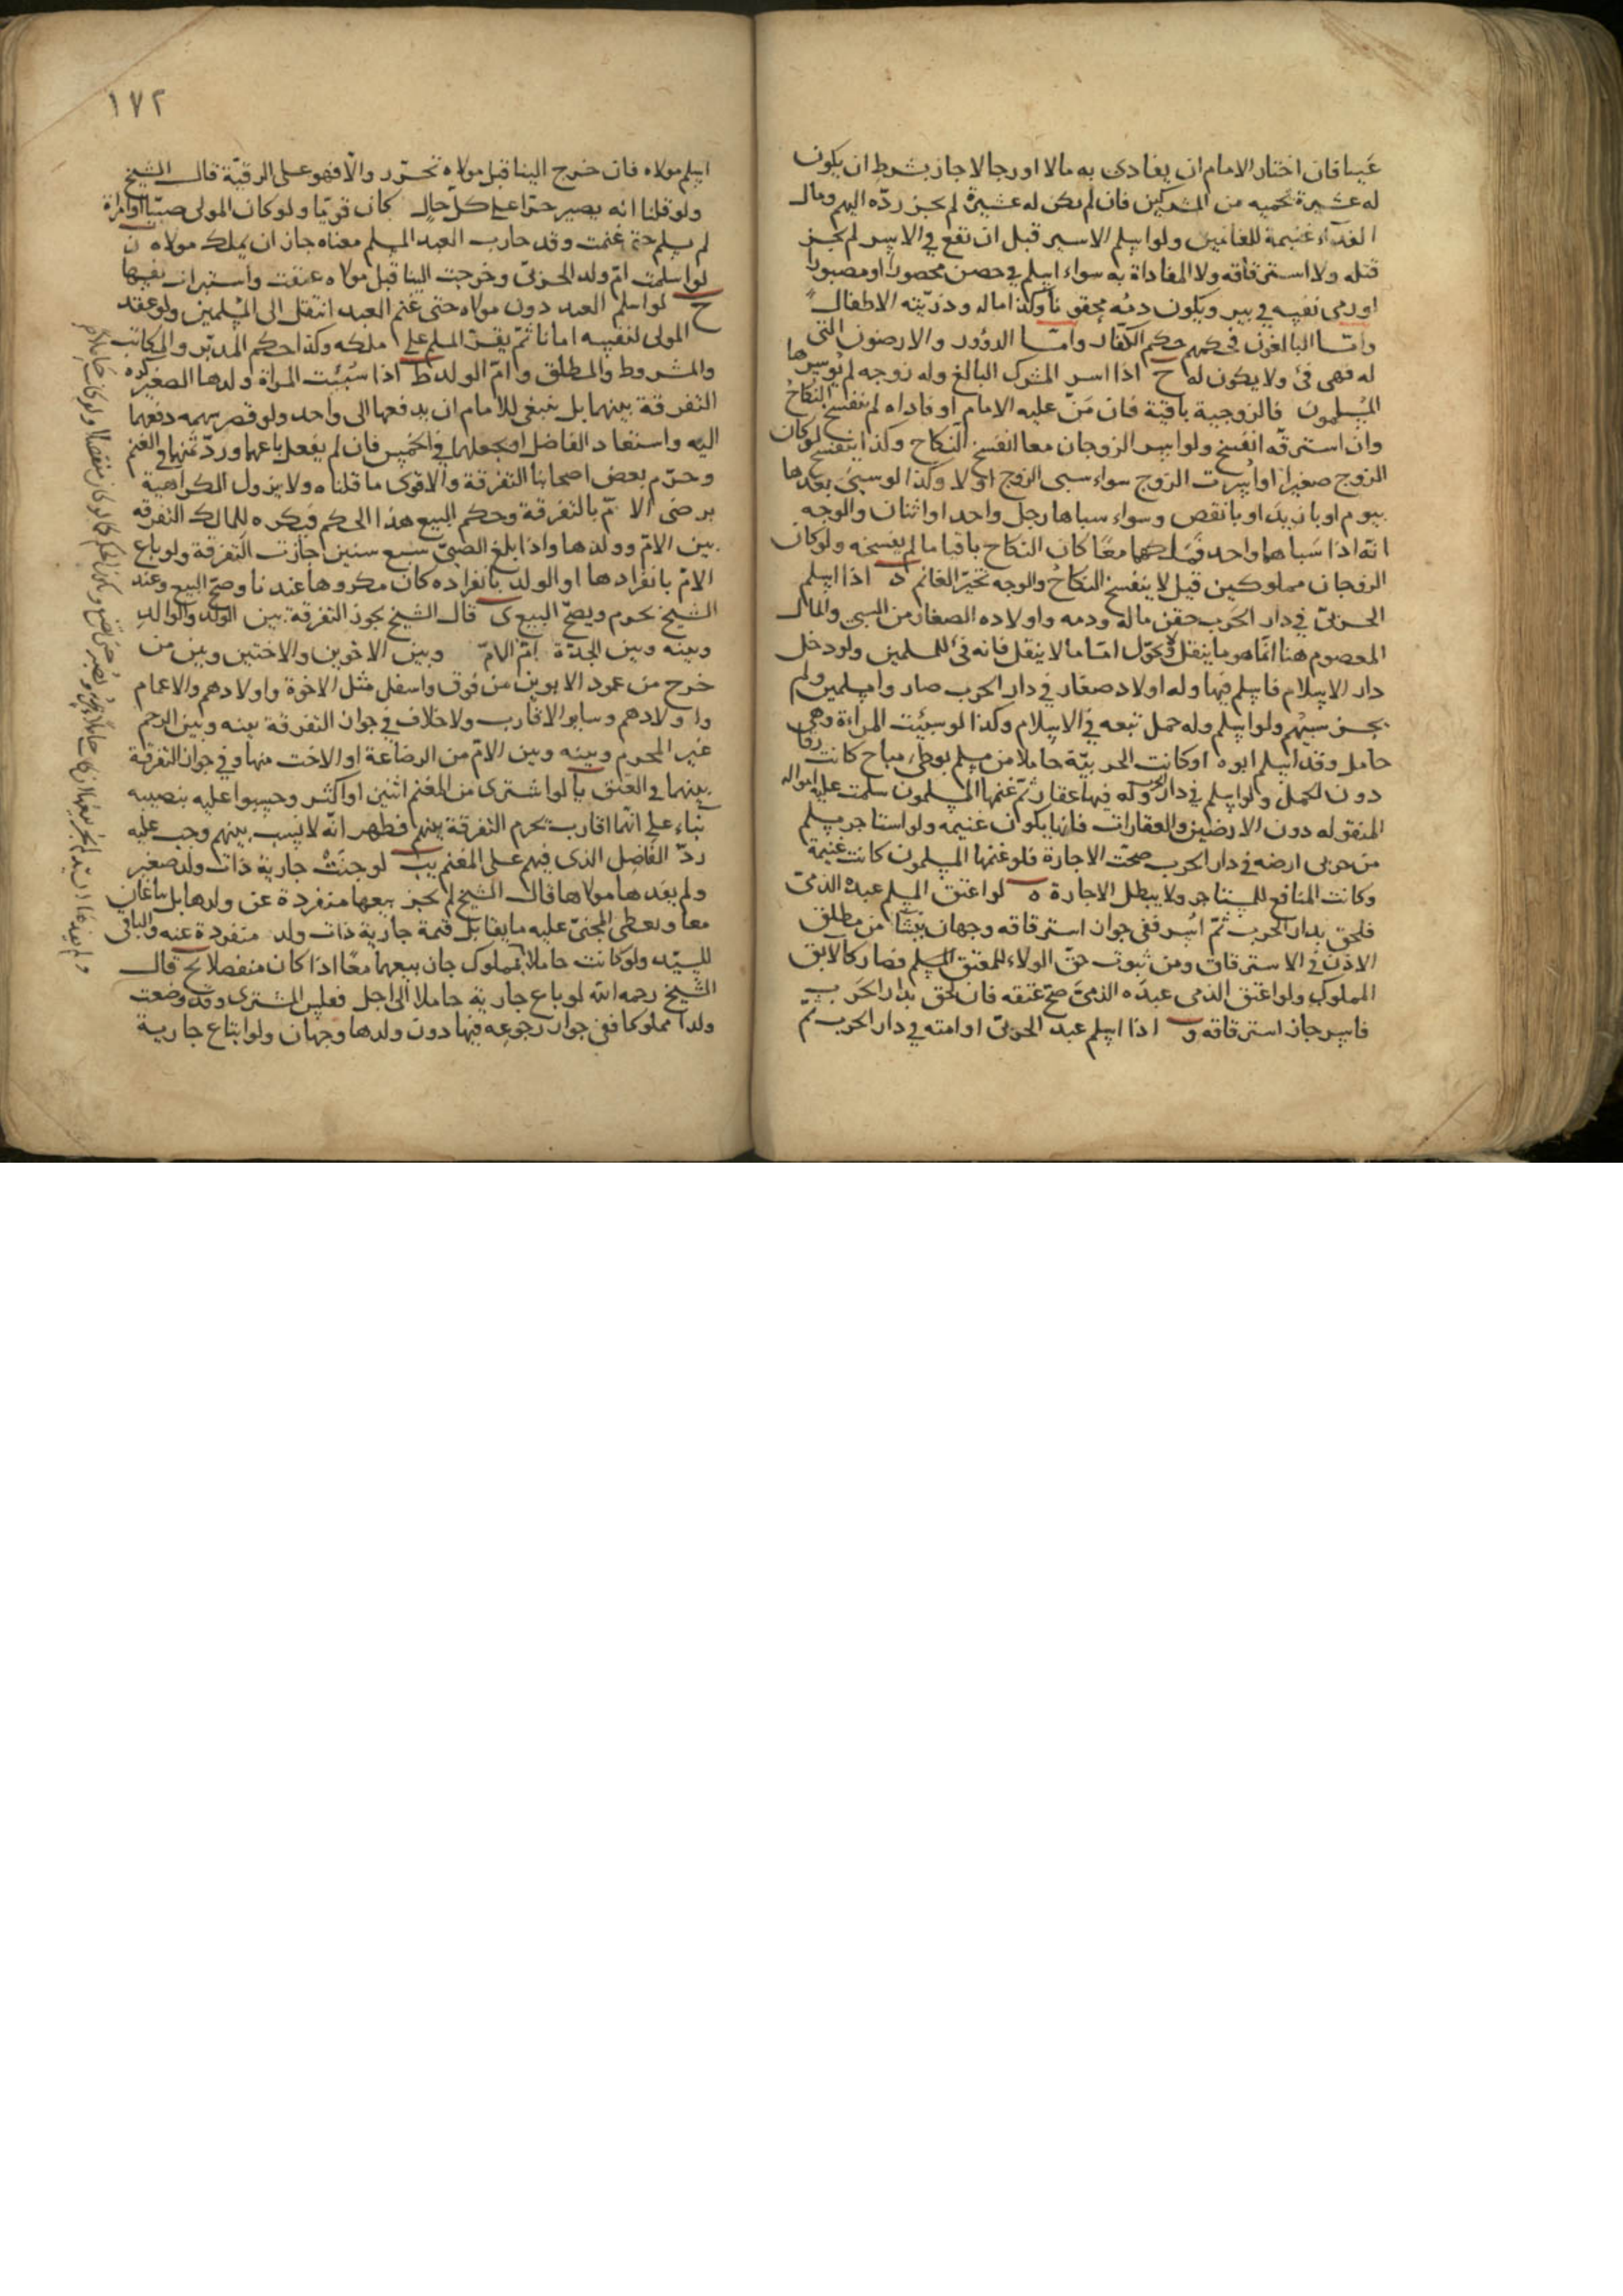 عينا فان اختار الامام ان يفادى به مالا او رجالا جاز بشرط ان يكون
له عشيرة تحميه من المشركين فان لم يكن له عشيرة لم يجز ردّه اليهم ومال
الفداء غنيمة للغانمين ولو اسلم الاسير قبل ان تقع في الاسر لم يجز
قتله ولا استرقاقه ولا المفاداة به سواء اسلم في حصن محصورا او مصبورا
او رمى نفسه في بير ويكون دمه محقونا وكذا ماله وذريّته الاطفال
وامّا البالغون فحكمهم حكم الكفار وامّا الدور والارضون التي
له فهى فئ ولا يكون له ح اذا اسر المشرك البالغ وله زوجه لم يوسرها
المسلمون فالزوجية باقية فان مَنّ عليه الامام او فاداه لم ينفسخ النكاح
وان استرقّه انفسخ ولو اسر الزوجان معا انفسخ النكاح وكذا ينفسخ لو كان
الزوج صغيرا او اُسرت الزوج سواء سبى الزوج اولا وكذا لو سبى بعدها
بيوم او بازيد او بانقص وسواء سباها رجل واحد او اثنان والوجه
انّه اذا سَباهما واحد فملكهما معًا كان النكاح باقيا ما لم يفسخه ولو كان
الزوجان مملوكين قيل لا ينفسخ النكاح والوجه تخيّر الغانم د اذا اسلم
الحربىّ في دار الحرب حقن ماله ودمه واولاده الصغار من السبى والمال
المعصوم هنا انّما هو ما ينقل ويحوّل امّا ما لا ينقل فانه فئ للمسلمين ولو دخل
دار الاسلام فاسلم فيها وله اولاد صغار في دار الحرب صاروا مسلمين ولم
يجز سبيهم ولو اسلم وله حمل تبعه في الاسلام وكذا لو سبيت المراءة وهى
حامل وقد اسلم ابوه او كانت الحربيّة حاملا من مسلم بوطى مباح كانت رقا
دون الحمل ولو اسلم في دار الحرب وله فيها عقار ثمّ غنمها المسلمون سلمت عليه امواله
المنقوله دون الارضين والعقارات فانها يكون غنيمه ولو استاجر مسلم
من حربى ارضه في دار الحرب صحّت الاجارة فلو غنمها المسلمون كانت غنيمة
وكانت المنافع للمستاجر ولا يبطل الاجارة ه لو اعتق المسلم عبده الذمّى
فلحق بدار الحرب ثمّ اُسر ففى جواز استرقاقه وجهان ينشا من مطلق
الاذن في الاسترقاق ومن ثبوت حقّ الولاء للمعتق المسلم فصار كالابق
المملوك ولو اعتق الذمى عبدَه الذمىّ صحّ عتقه فان لحق بدار الحرب
فاسر جاز استرقاقه و اذا اسلم عبد الحربىّ او امته في دار الحرب ثمّ
١٧٢
اسلم مولاه فان خرج الينا قبل مولاه تحرّر والّا فهو على الرقيّة قال الشيخ
ولو قلنا انه يصير حرّا على كلّ حال كان قويّا ولو كان المولى صبيّا او امراة
لم يسلم حتى غنمت وقد حارب العبد المسلم معناه جاز ان يملك مولاه ز
لو اسلمت امّ ولد الحربىّ وخرجت الينا قبل مولاه عتقت واستبرات نفسها
ح لو اسلم العبد دون مولاه حتى غنم العبد انتقل الى المسلمين ولو عقد
المولى لنفسه امانا ثمّ يقرّ المسلم على ملكه وكذا حكم المدبّر والمكاتب
والمشروط والمطلق وامّ الولد ط اذا سُبيت المراة وولدها الصغير كره
التفرقة بينهما بل ينبغى للامام ان يدفعها الى واحد ولو قصر سهمه دفعهما
اليه واستعاد الفاضل او يجعلهما في الخمس فان لم يفعل باعهما وردّ ثمنهما في الغنم
وحرّم بعض اصحابنا التفرقة والاقوى ما قلناه ولا يزول الكراهية
برضى الامّ بالتفرقة وحكم البيع هذا الحكم فيكره للمالك التفرقه
بين الامّ وولدها واذا بلغ الصبىّ سبع سنين جازت التفرقة ولو باع
الامّ بانفرادها او الولد بانفراده كان مكروها عندنا وصحّ البيع وعند
الشيخ يحرم ويصحّ البيع ى قال الشيخ يجوز التفرقة بين الولد والوالد
وبينه وبين الجدّة امّ الامّ وبين الاخوين والاختين وبين من
خرج من عمود الابوين من فوق واسفل مثل الاخوة واولادهم والاعمام
واولادهم وساير الاقارب ولا خلاف في جواز التفرقة بينه وبين الرحم
غير المحرم وبينه وبين الامّ من الرضاعة او الاخت منها وفي جواز التفرقة
بينهما في العتق يا لو اشترى من المغنم اثنين او اكثر وحسبوا عليه بنصيبه
بناء على انّها اقارب يحرم التفرقة بينهم فظهر انّه لا نسب بينهم وجب عليه
ردّ الفاضل الذى فيهم على المغنم يب لو جنَتْ جارية ذات ولد صغير
ولم يفدها مولاها قال الشيخ لم يجز بيعها منفردة عن ولدها بل يباعان
معا ويعطى المجنىّ عليه ما يقابل قيمة جارية ذات ولد منفردة عنه والباقى
للسيّد ولو كانت حاملا بمملوك جاز بيعهما معًا اذا كان منفصلا يج قال
الشيخ رحمه الله لو باع جارية حاملا الى اجل ففلس المشترى وقد وضعت
ولدا مملوكا ففى جواز رجوعه فيها دون ولدها وجهان ولو ابتاع جارية